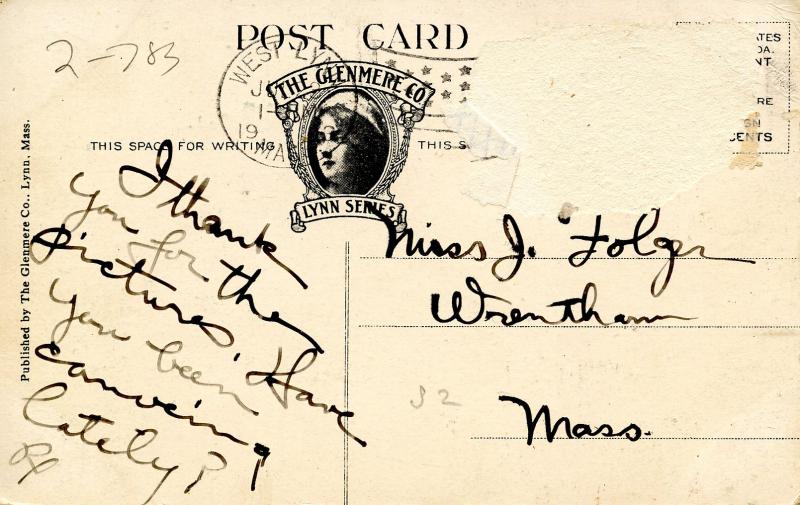 2-783
POST CARD
WEST LYN
19
MA
THE GLENMERE CO
LYNN SERIES
THIS SPACE FOR WRITING
THIS S
ATES
DA.
NT
RE
GN
CENTS
Published by The Glenmere Co., Lynn, Mass.
I thank
you for the
pictures. Have
you been
canoeing
lately?
Miss J. Folger
Wrentham
Mass.
32